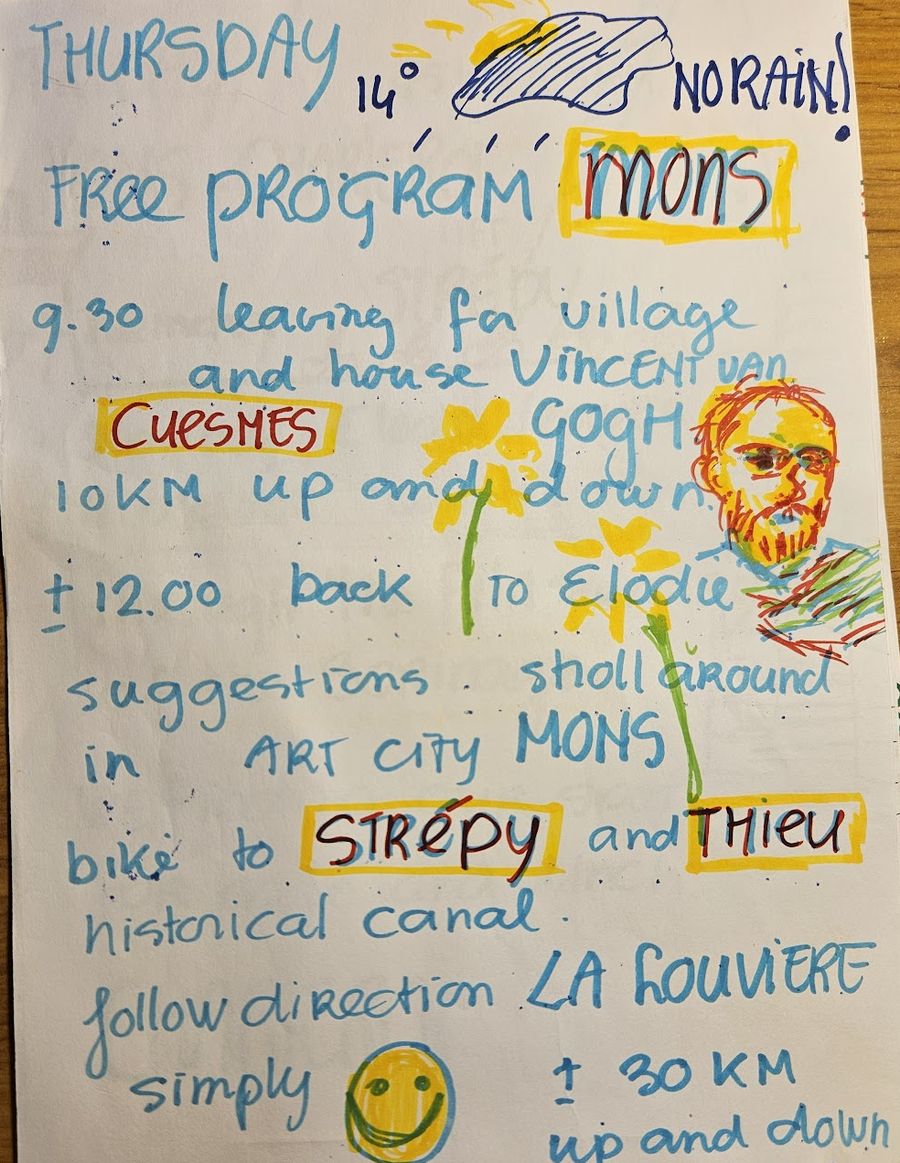 THURSDAY 14° NO RAIN!
FREE PROGRAM MONS
9.30 leaving for village
and house VINCENT VAN
CUESMES GOGH
10 KM up and down.
± 12.00 back TO Elodie
suggestions. stroll around
in ART CITY MONS
bike to STRÉPY and THIEU
historical canal.
follow direction LA LOUVIERE
simply ± 30 KM
up and down